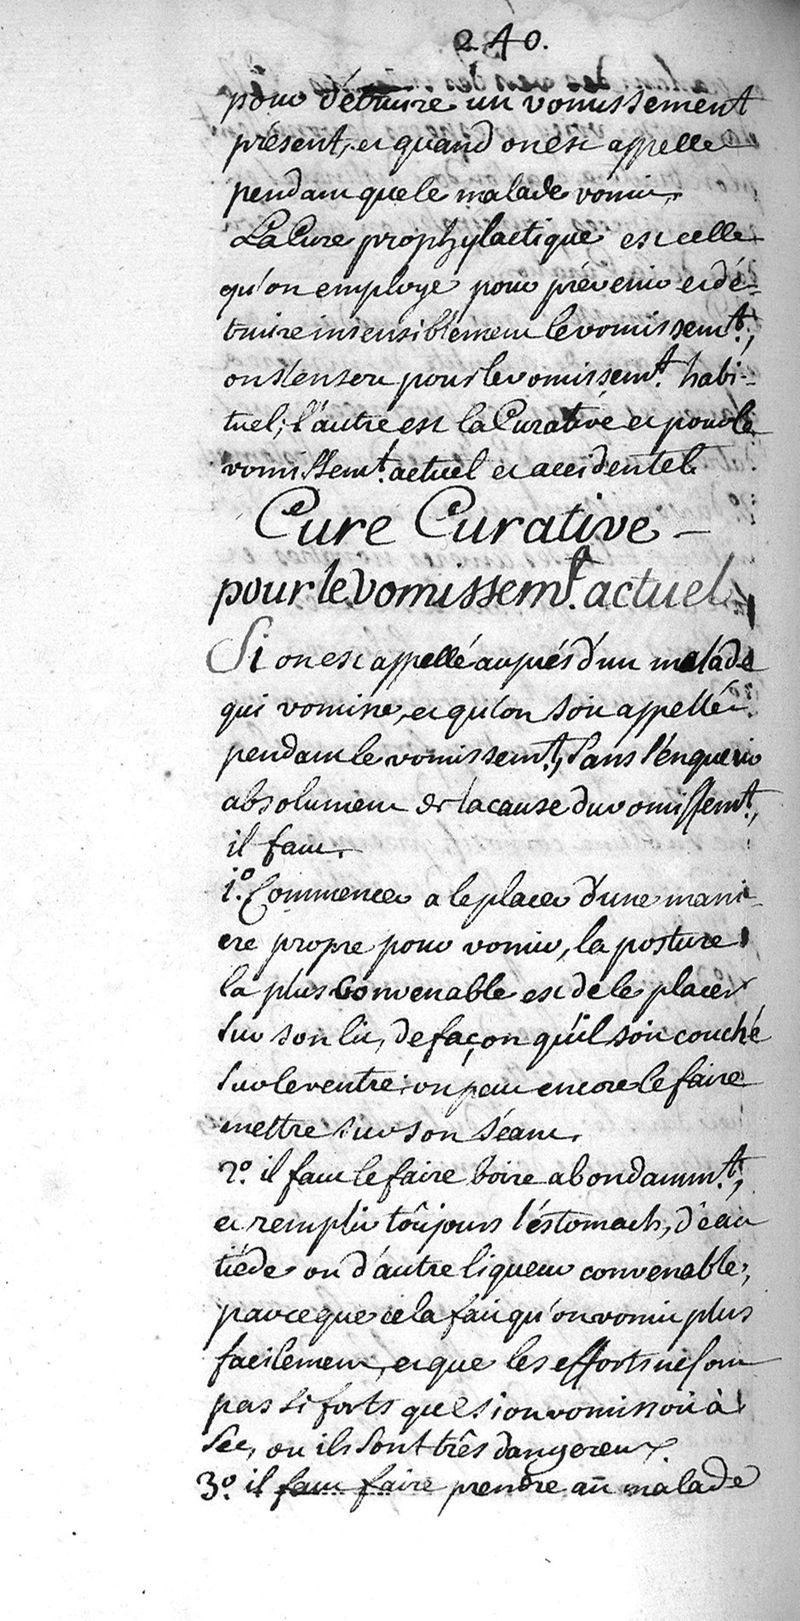 240.
pour détruire un vomissement
présent, et quand on est appellé
pendant que le malade vomit.
La Cure prophylactique est celle
qu'on employe pour prévenir et dé-
truire insensiblement le vomissemt.,
on s'en sert pour le vomissemt. habi-
tuel; l'autre est la Curative et pour le
vomissemt. actuel et accidentel.
Cure Curative
pour le vomissemt. actuel.
Si on est appellé auprés d'un malade
qui vomisse, et qu'on soit appellé
pendant le vomissemt., sans s'enquerir
absolument de la cause du vomissemt.,
il faut.
1º. Commencer a le placer d'une mani-
ere propre pour vomir, la posture
la plus convenable est de le placer
sur son lit, de façon qu'il soit couché
sur le ventre; on peut encore le faire
mettre sur son séant.
2º. il faut le faire boire abondammt.,
et remplir toûjours l'éstomach, d'eau
tiéde ou d'autre liqueur convenable,
parceque cela fait qu'on vomit plus
facilement, et que les efforts ne sont
pas si forts que si on vomissoit à
sec, ou ils sont três dangereux.
3º. il faut faire prendre au malade